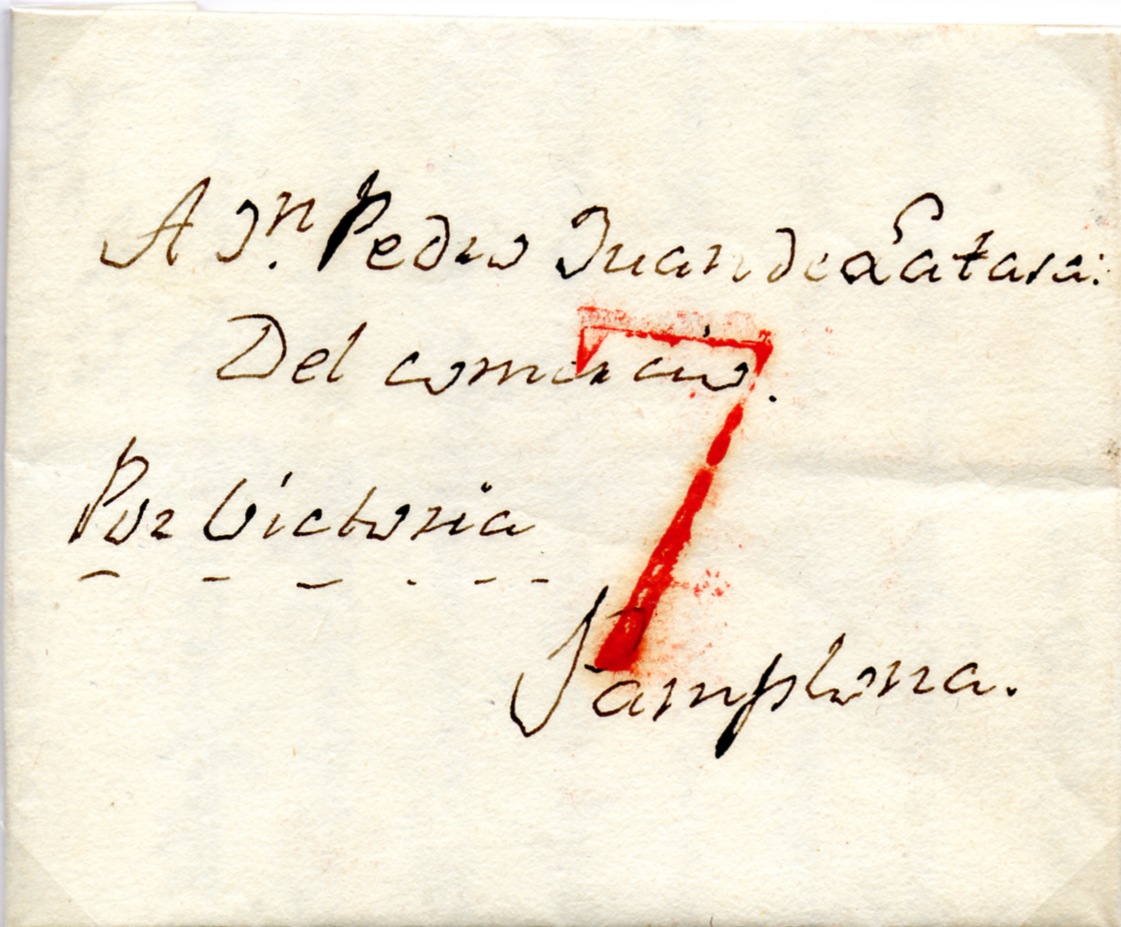 A Dn. Pedro Juan de Latasa:
Del comercio.
7
Por Victoria
Pamplona.